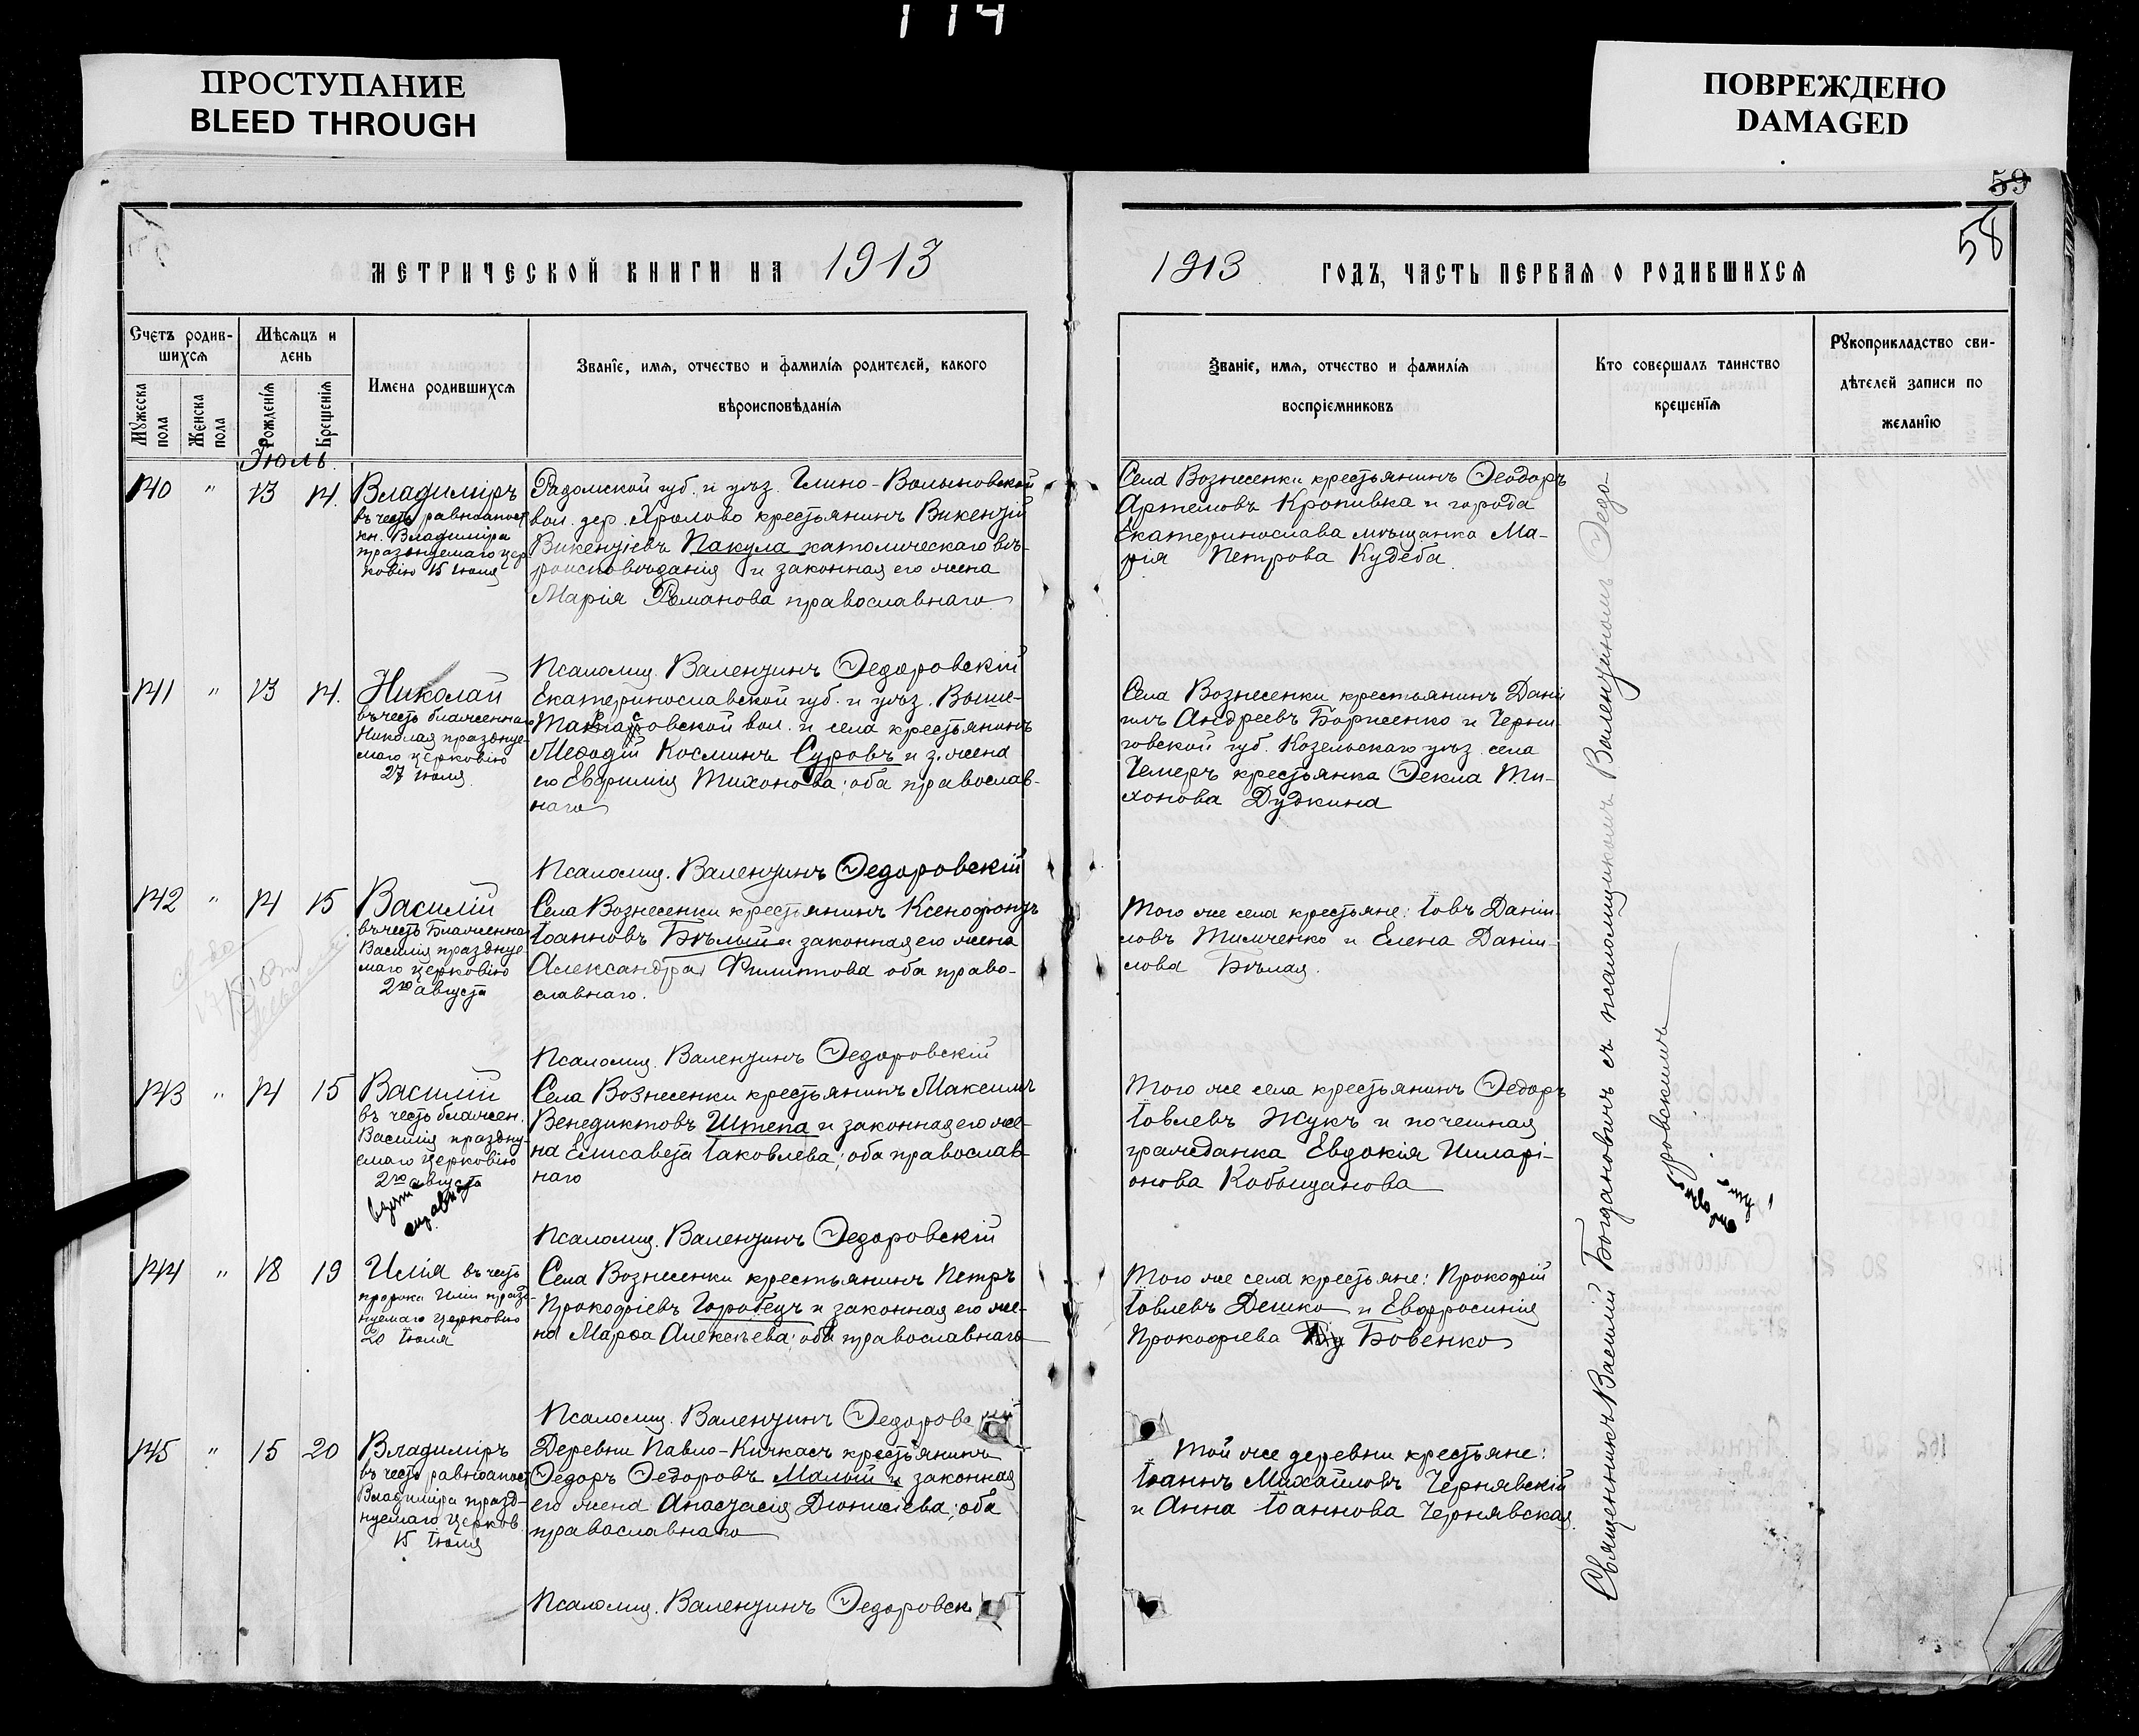 114
ПРОСТУПАНИЕ
BLEED THROUGH
ПОВРЕЖДЕНО
DAMAGED
59
58
МЕТРИЧЕСКОЙ КНИГИ НА 1913
Счетъ родив-
шихся
Мѣсяцъ и
день
Мужеска
пола
Женска
пола
Рожденія
Крещенія
Имена родившихся
Званіе, имя, отчество и фамилія родителей, какого
вѣроисповѣданія
Іюль
140 " 13 14.
Владиміръ
въ честь равноапост
кн. Владиміра
празднуемаго цер
ковію 15 Іюля
Радомской губ. и уѣз. Глино-
вол. дер. Хролово крестьянинъ Викентій
Викентіевъ Пакула католическаго вѣ-
роисповѣданія и законная его жена
Марія Романова православнаго
Псаломщ. Валентинъ Ѳедоровскій
141 " 13 14.
Николай
въ честь блаженнаго
Николая празднуе-
маго церковію
27 Іюля
Екатеринославской губ. и уѣз. Выше-
вол. и села крестьянинъ
Меѳодій Косминъ Суровъ и з. жена
его Евфимія Тихонова; оба православ-
наго
Псаломщ. Валентинъ Ѳедоровскій
142 " 14 15
Василій
въ честь Блаженна
Василія празднуе-
маго церковію
2го августа
Села Вознесенки крестьянинъ Ксенофонтъ
Іоанновъ Бѣлый и законная его жена
Александра Филиппова оба право-
славнаго.
Псаломщ. Валентинъ Ѳедоровскій
143 " 14 15
Василій
въ честь блажен.
Василія праздну-
емаго церковію
2го августа
Села Вознесенки крестьянинъ Максимъ
Венедиктовъ Штепа и законная его же-
на Елисавета Іаковлева; оба православ-
наго
Псаломщ. Валентинъ Ѳедоровскій
144 " 18 19
Илія въ честь
пророка Иліи празд-
нуемаго церковію
20 Іюля
Села Вознесенки крестьянинъ Петръ
Прокофіевъ Горобецъ и законная его же-
на Марѳа Алексѣева; оба православнаго
Псаломщ. Валентинъ Ѳедоровскій
145 " 15 20
Владиміръ
въ честь равноапост
Владиміра празд-
нуемаго церков
15 Іюля
Деревни Павло-Кичкасъ крестьянинъ
Ѳедоръ Ѳедоровъ Малый и законная
его жена Анастасія Діонисіева; оба
православнаго
Псаломщ. Валентинъ Ѳедоровск
1913 ГОДЪ, ЧАСТЬ ПЕРВАЯ О РОДИВШИХСЯ
Званіе, имя, отчество и фамилія
воспріемниковъ
Кто совершалъ таинство
крещенія
Рукоприкладство сви-
дѣтелей записи по
желанію
Села Вознесенки крестьянинъ Ѳеодоръ
Артемовъ Кропивка и города
Екатеринослава мѣщанка Ма-
рія Петрова Кудеба.
Села Вознесенки крестьянинъ Дані
илъ Андреевъ Борисенко и Черни
говской губ. Козельскаго уѣз. села
Чемеръ крестьянка Ѳекла Ти-
хонова Дудкина
Того же села крестьяне: Іовъ Даніи-
ловъ Тимченко и Елена Даніи-
лова Бѣлая.
Того же села крестьянинъ Ѳедоръ
Іовлевъ Жукъ и почетная
гражданка Евдокія Иларі-
онова Кобыщанова
Того же села крестьяне: Прокофій
Іовлевъ Дешко и Евфросинія
Прокофіева Бовенко
Той же деревни крестьяне:
Іоаннъ Михайловъ Чернявскій
и Анна Іоаннова Чернявская.
Священникъ Василій Богдановичъ съ псаломщикомъ Валентиномъ Ѳедо-
ровскимъ